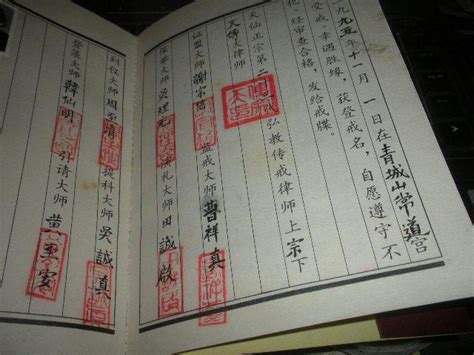 一九九五年十一月一日在青城山常道宫
受戒，幸遇胜缘，获登戒名，自愿遵守不
犯，经审查合格，发给戒牒。
天仙正宗第二 弘教传戒律师上宗下
大律师
证盟大师謝宗信 监戒大师曹祥真
保举大师 理光 演礼大师周誠啟
纠仪大师周至清 提科大师吴誠真
登箓大师韓仙明 引请大师黄至安